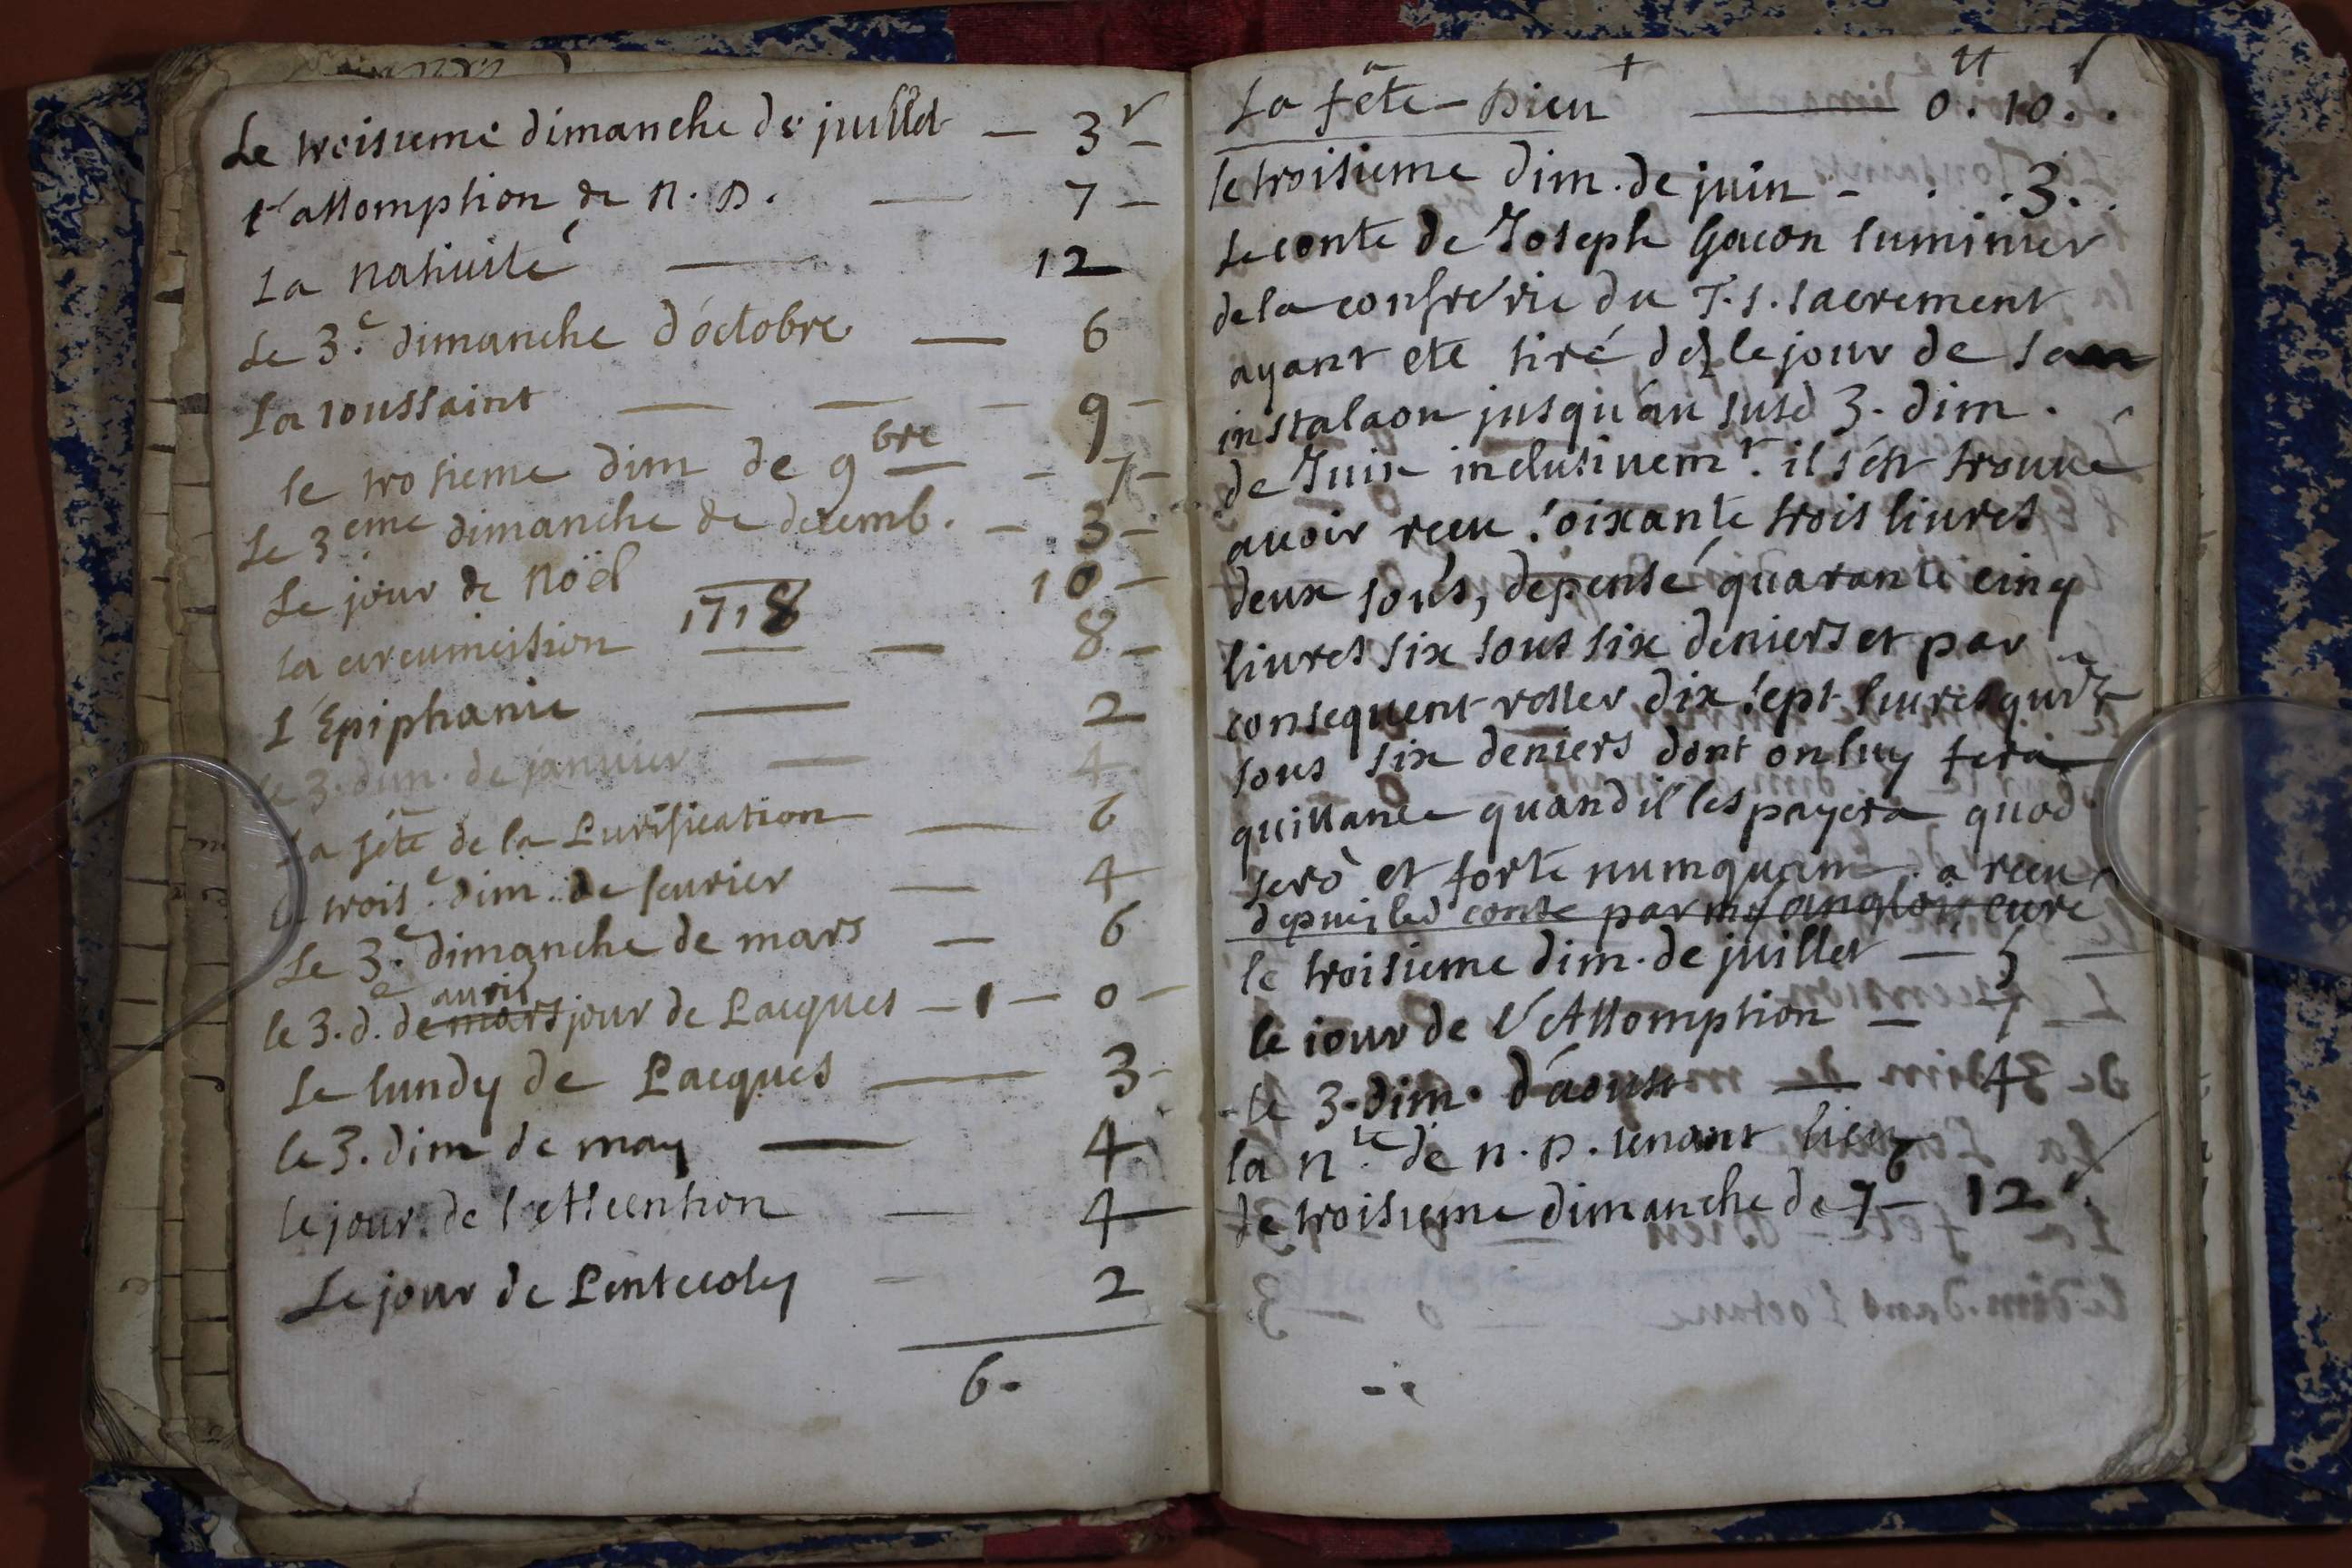 Le troisieme dimanche de juillet — 3 s
l'assomption de N. D. — 7 —
La nativité — 12
Le 3.e dimanche d'octobre — 6
La toussaint — — — 9 —
le trosieme dim de 9bre — — 7 —
Le 3eme dimanche de decemb. — 3 —
Le jour de Noël — 10 —
1718
la circumcision — — 8 —
L'Epiphanie — 2
le 3. dim. de janvier — 4
La fête de la Purification — 6
le trois.e dim. de fevrier — 4
Le 3.e dimanche de mars — 6
le 3.e d. de mars avril jour de Pacques — 1 — 0 —
Le lundy de Pacques — 3 —
le 3. dim de may — 4
le jour de l'Assention — 4
Le jour de Pentecoty — 2
6 .
La fête - Dieu + — 0 . 10 . .
le troisieme dim. de juin - . . 3 . .
Le conte de Joseph Gacon luminier
de la confrérie du T. S. Sacrement
ayant ete tiré dez le jour de son
instalaon jusqu'au susd 3. dim.
de Juin inclusivemt. il s'est trouvé
avoir receu soixante trois livres
deux sous, depensé quarante cinq
livres six sous six deniers et par
consequent rester dix sept livres quinze
sous six deniers dont on luy fera
quittance quand il les payera quod
serò et forte numquam. a receu
depuis led conte par mr anglois curé
le troisieme dim. de juillet — 5 —
le jour de l'Assomption — 7 —
le 3. dim. d'aoust — 4
la n.te de n. D. tenant lieu
de troisieme dimanche de 7b — 12 s.